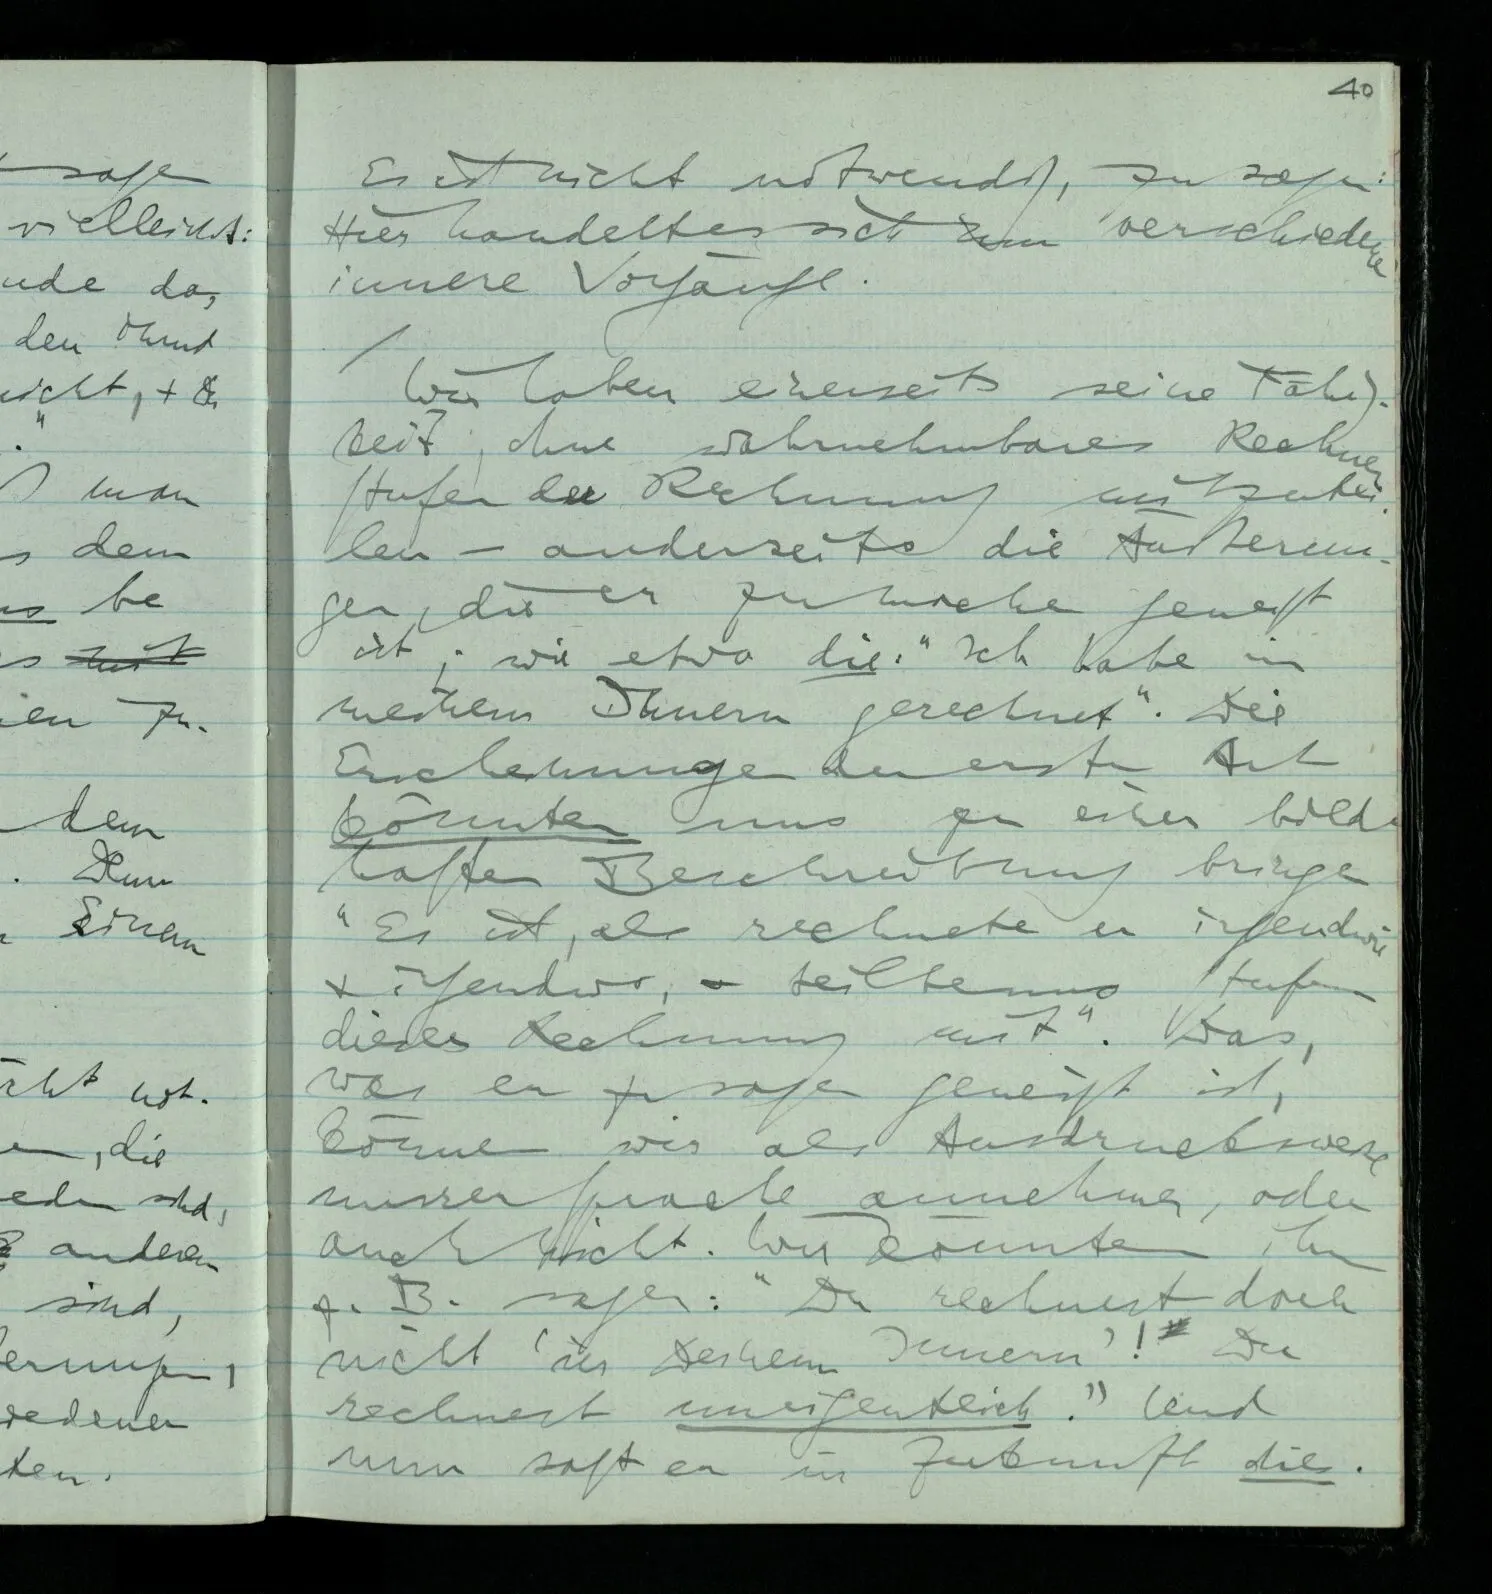 sagen
vielleicht:
nde da,
den Mund
nicht, +
."
man
dem
be
zu-
dem
Einem
nicht not-
, die
sind,
anderen
sind,
erungen,
iedener
ten.
40
Es ist nicht notwendig, zu sagen:
Hier handelt es sich um verschiedene
innere Vorgänge.
/
Wir haben einerseits seine Fähig-
keit, ohne wahrnehmbares Rechnen
Stufen der Rechnung mitzutei-
len – anderseits die Äußerun-
gen, die er zu machen geneigt
ist; wie etwa die: "Ich habe in
meinem Innern gerechnet". Die
Erscheinungen der ersten Art
könnten uns zu einer bild-
haften Beschreibung bringen
"Es ist, als rechnete er irgendwie
+ irgendwo, + teilte uns Stufen
dieser Rechnung mit". Das,
was er zu sagen geneigt ist,
können wir als Ausdrucksweise
unserer Sprache annehmen, oder
auch nicht. Wir könnten ihm
z. B. sagen: "Du rechnest doch
nicht 'in Deinem Innern'! Du
rechnest uneigentlich." Und
nun sagt er in Zukunft dies.